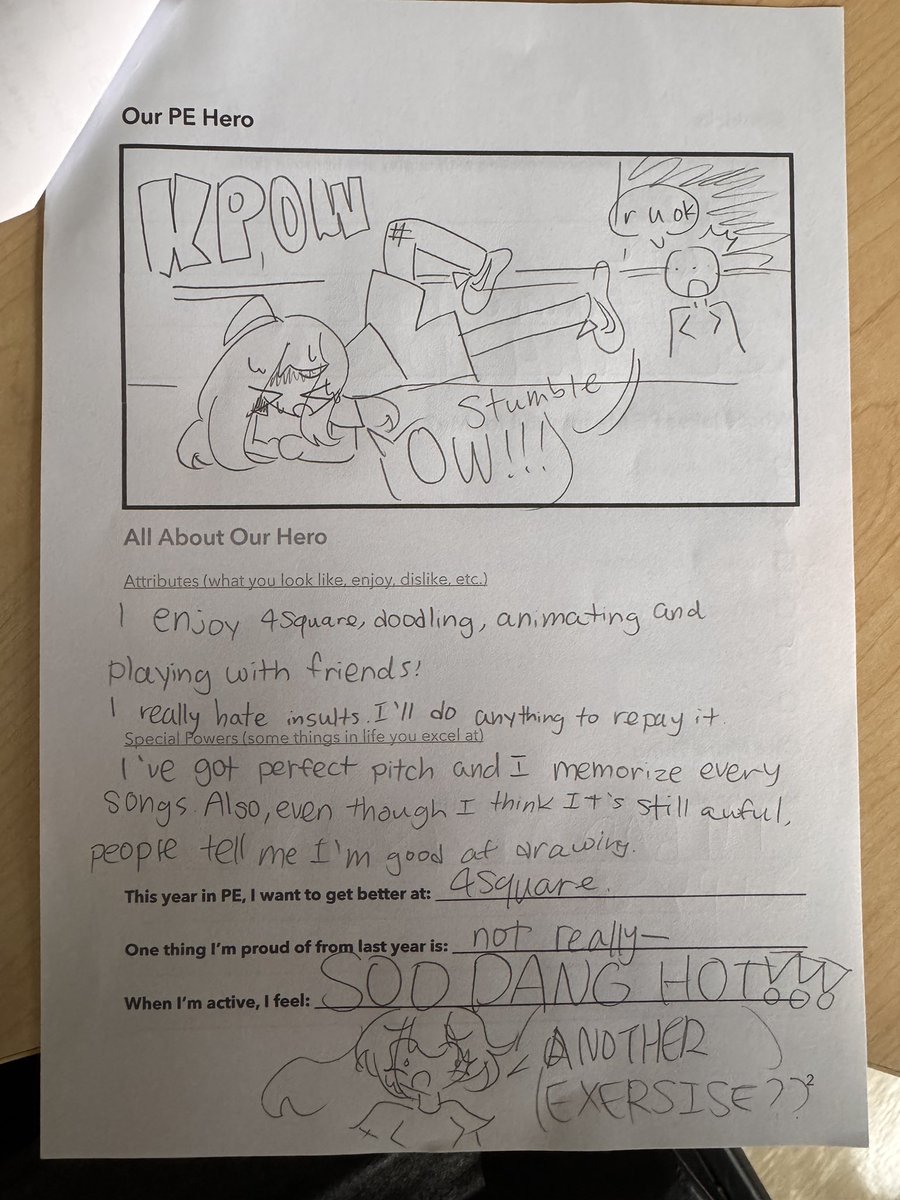 Our PE Hero
KPOW
r u ok
Stumble
OW!!!
All About Our Hero
Attributes (what you look like, enjoy, dislike, etc.)
I enjoy 4square, doodling, animating and
playing with friends!
I really hate insults. I'll do anything to repay it.
Special Powers (some things in life you excel at)
I've got perfect pitch and I memorize every
songs. Also, even though I think It's still awful,
people tell me I'm good at drawing.
This year in PE, I want to get better at: 4square.
One thing I'm proud of from last year is: not really—
When I'm active, I feel: SOO DANG HOT!!!
ANOTHER
(EXERSISE??)
2